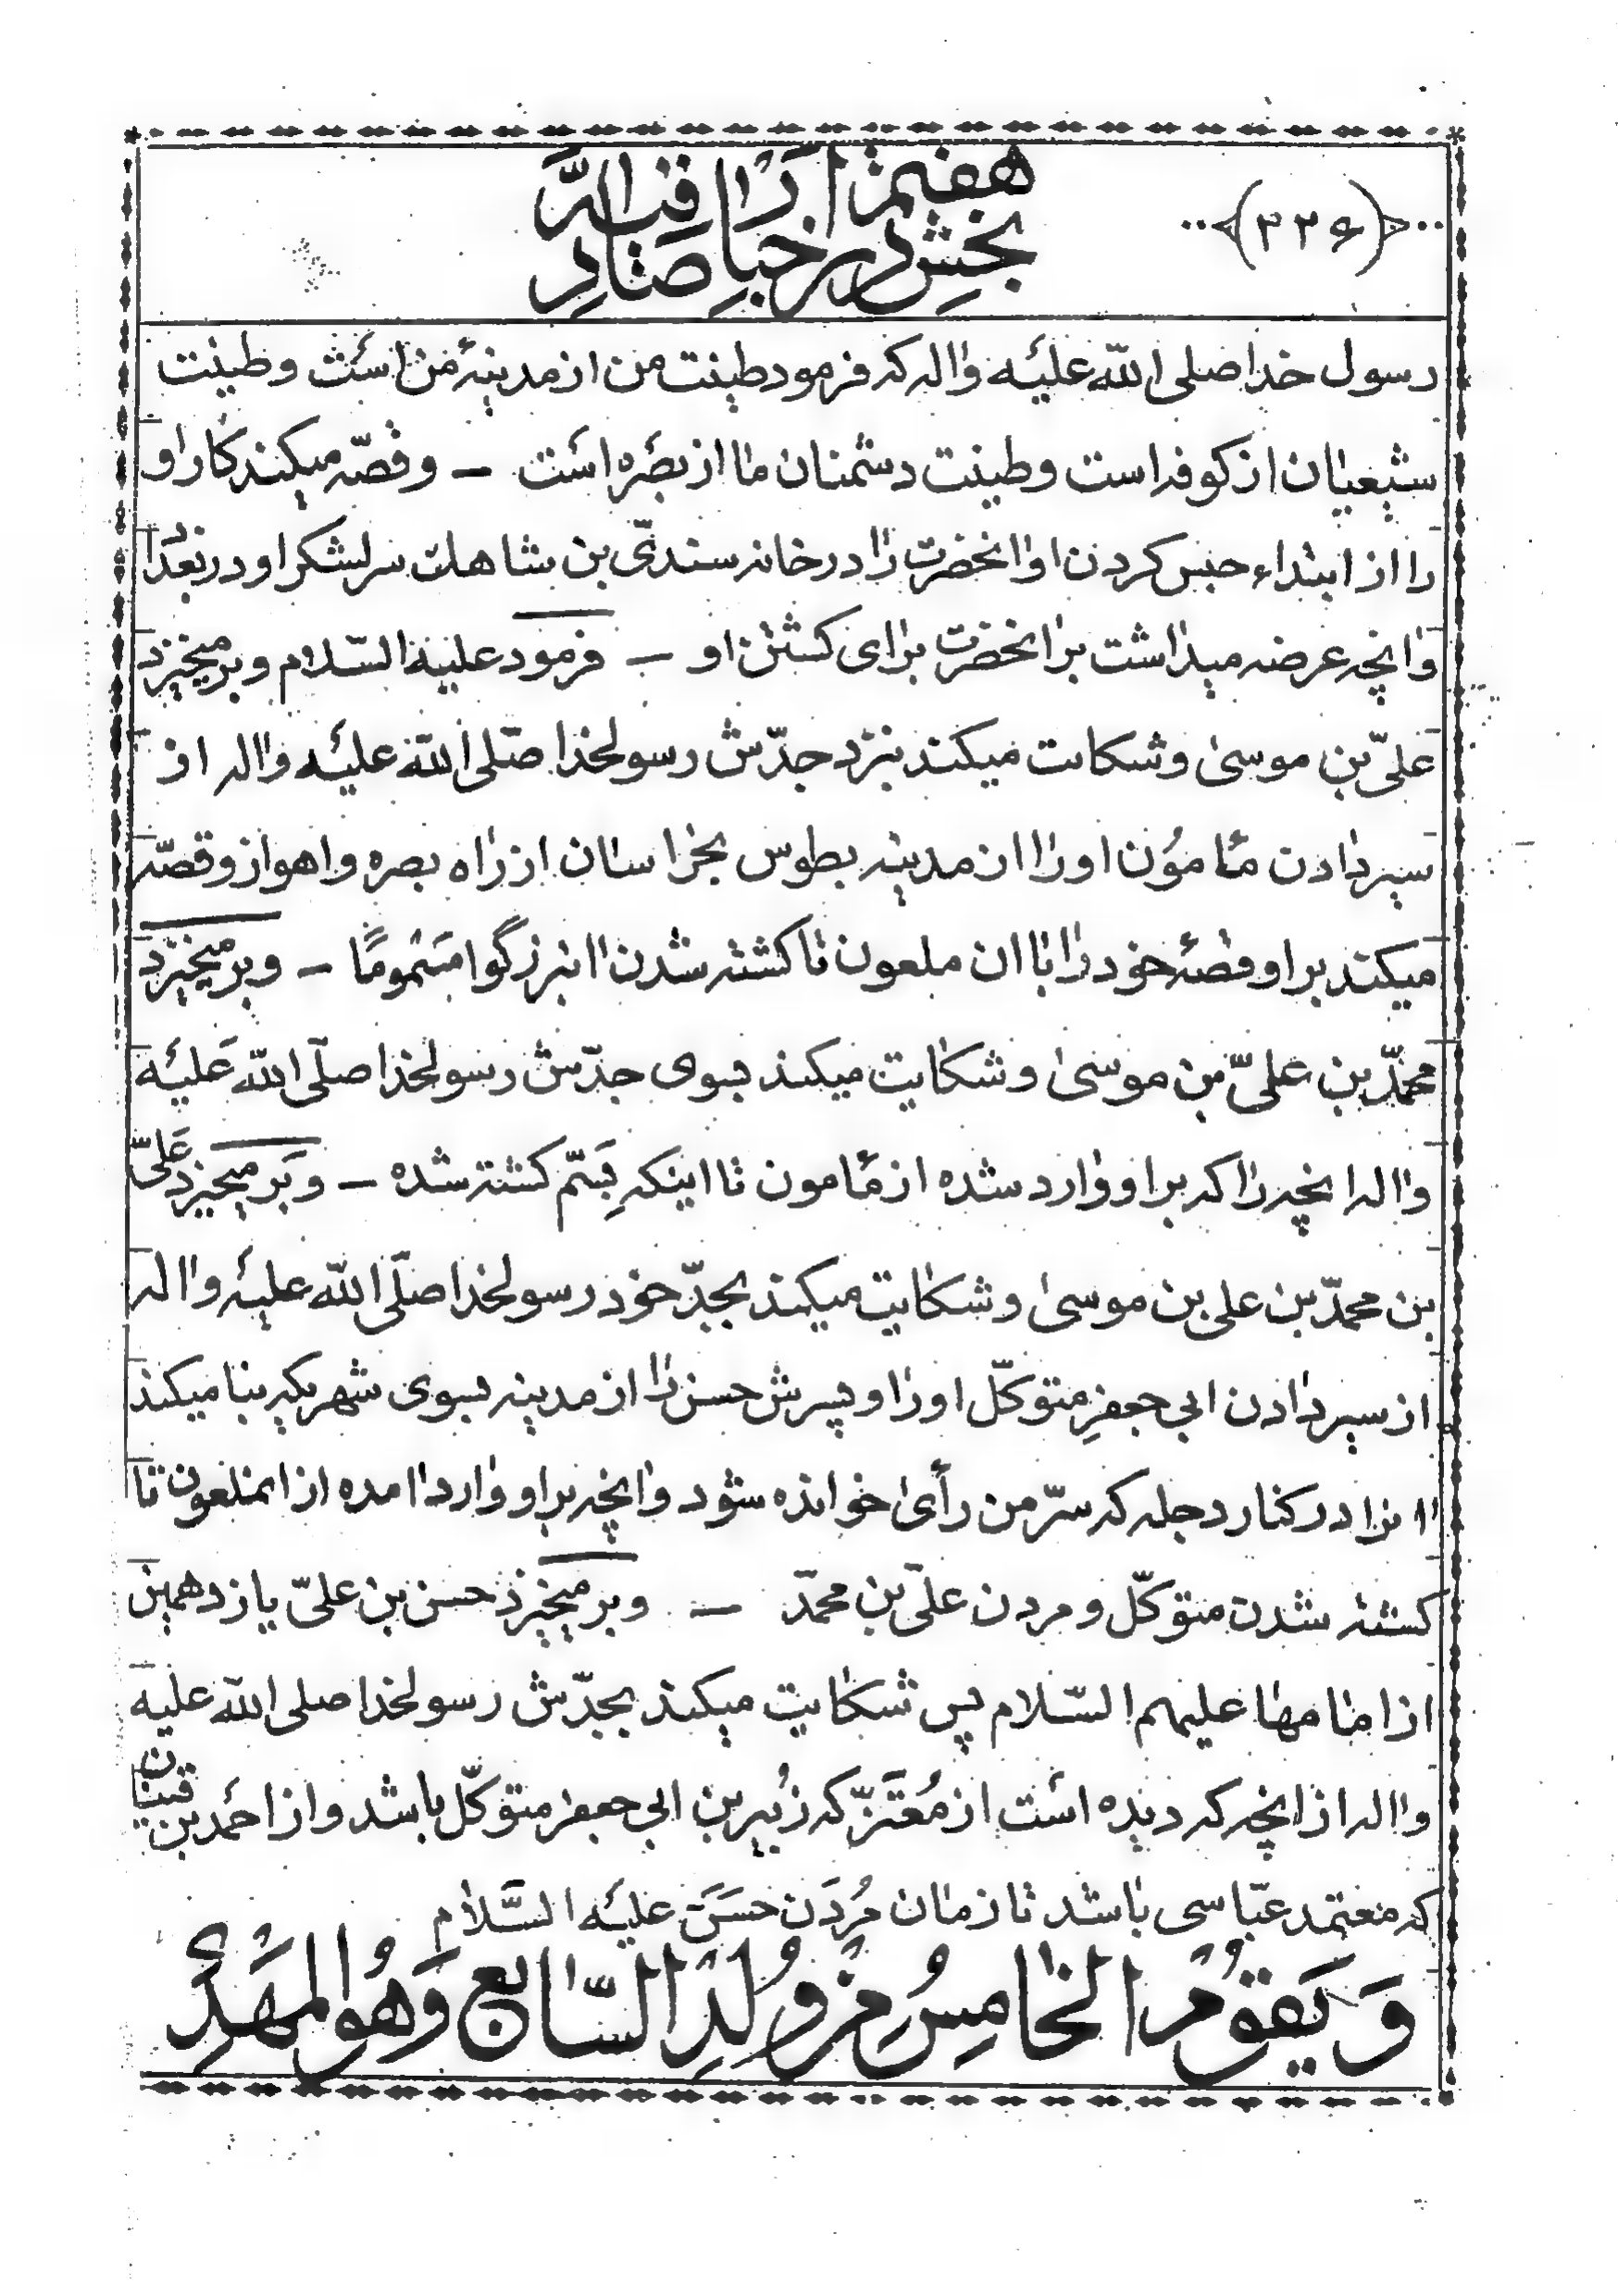 (۳۳۶)
بخش هفتم در اخبار صادقیه
رسول خدا صلی الله علیه واله که فرمود طینت من از مدینهٔ من است و طینت
شیعیان از کوفه است و طینت دشمنان ما از بصره است - و قصّه میکند کار او
را از ابتداء حبس کردن او انحضرت را در خانه سندی بن شاهک سرلشکر او در بغداد
وانچه عرضه میداشت بر انحضرت برای کشتن او - فرمود علیه السّلام و برمیخیزد
علیّ بن موسی و شکایت میکند بنزد جدّش رسولخدا صلّی الله علیه واله از
سیر دادن مأمون او را از مدینه بطوس بخراسان از راه بصره و اهواز و قصّه
میکند بر او قصّهٔ خود را با ان ملعون تا کشته شدن انبزرگوار مسمومًا - و برمیخیزد
محمّد بن علیّ بن موسی و شکایت میکند بسوی جدّش رسولخدا صلّی الله علیه
واله انچه را که بر او وارد شده از مأمون تا اینکه بِسَمّ کشته شده - و برمیخیزد علیّ
بن محمّد بن علی بن موسی و شکایت میکند بجدّ خود رسولخدا صلّی الله علیه واله
از سیر دادن ابی جعفرِ متوکّل او را و پسرش حسن را از مدینه بسوی شهریکه بنا میکند
انرا در کنار دجله که سرّ من رأی خوانده شود وانچه بر او وارد امده از انملعون تا
کشته شدن متوکّل و مردن علیّ بن محمّد - و برمیخیزد حسن بن علیّ یازدهمین
از امامها علیهم السّلام پس شکایت میکند بجدّش رسولخدا صلی الله علیه
واله از انچه که دیده است از مُعتَزّ که زُبیر بن ابی جعفر متوکّل باشد و از احمد بن قتیان
که معتمد عبّاسی باشد تا زمان مُردَن حسَن علیه السَّلام
وَ یَقوُمُ الخامِسُ مِن وُلدِ السّابِع وَهُوَ المَهدِیُّ